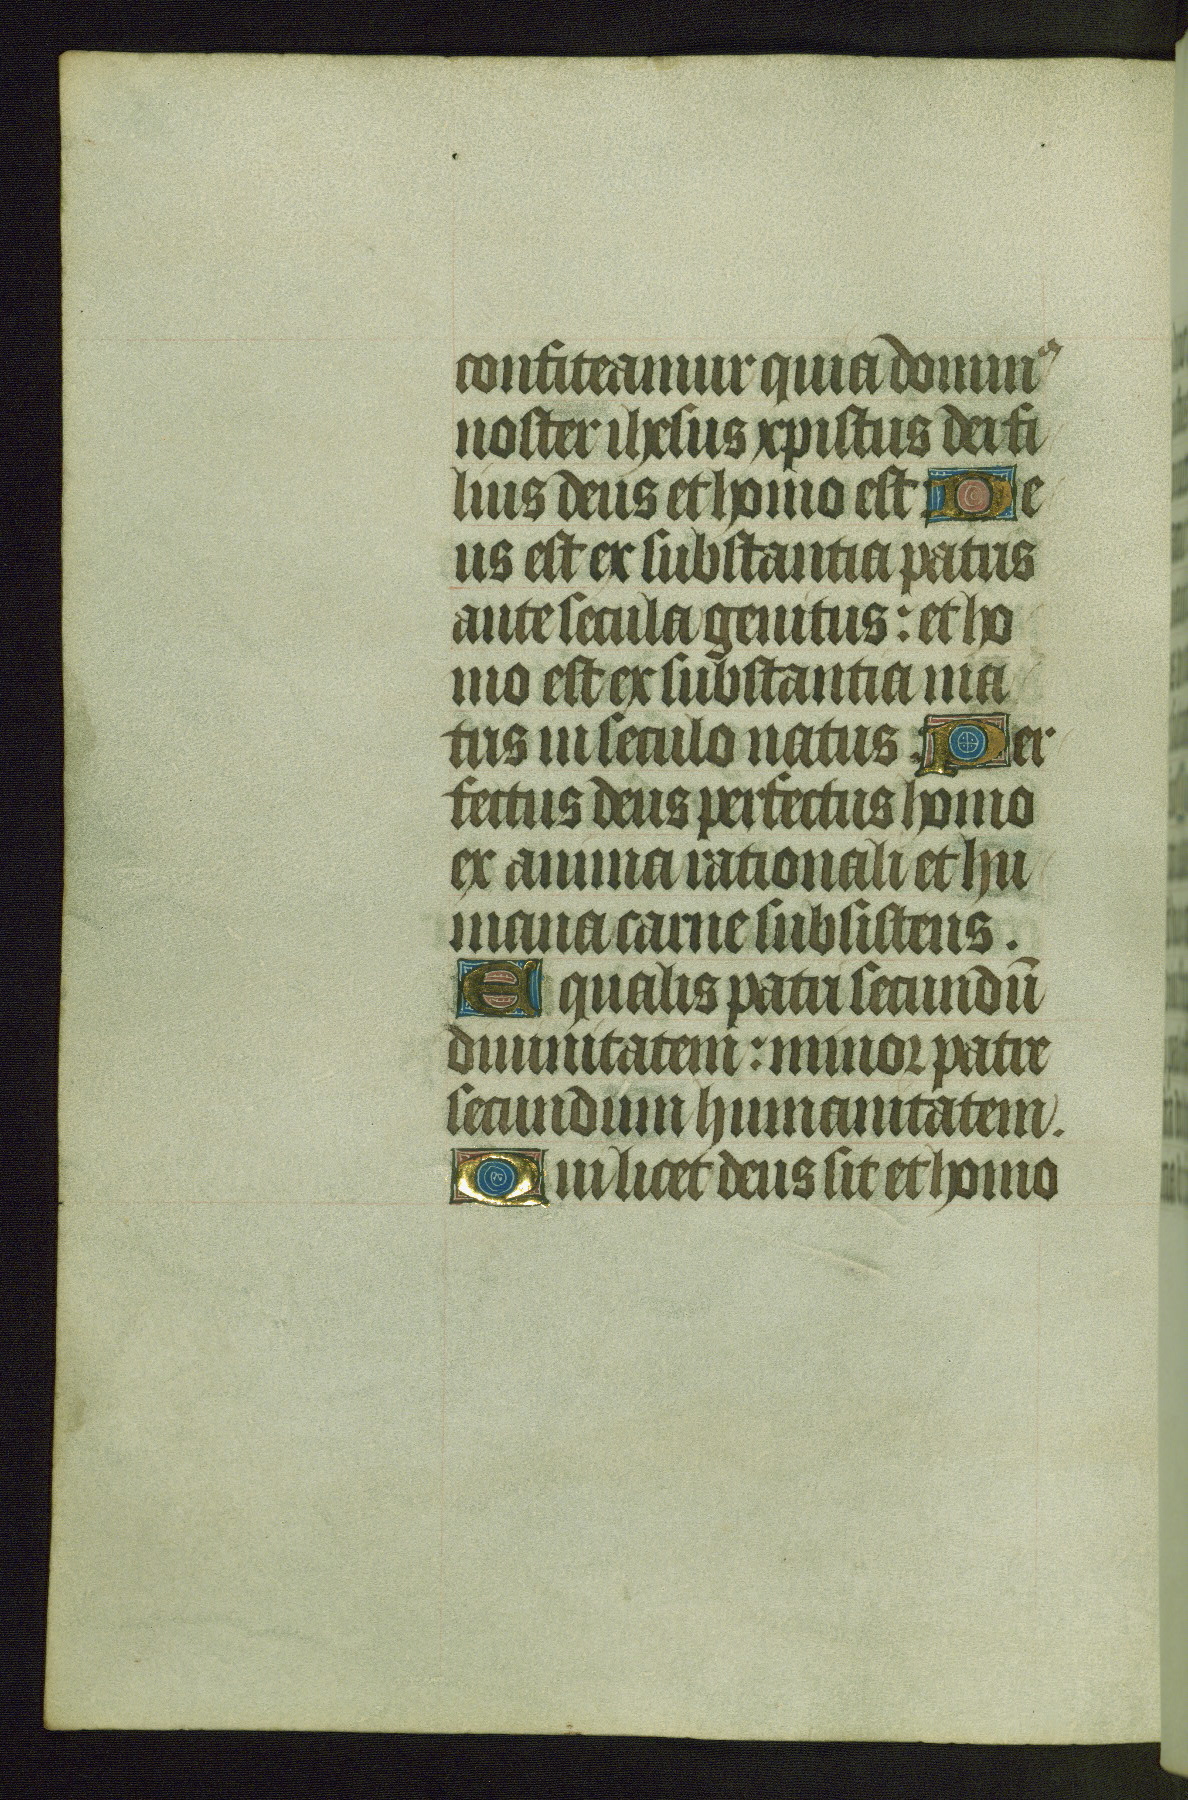 confiteamur quia domin⁹
noster ihesus xpistus dei fi
lius deus et homo est : De
us est ex substantia patris
ante secula genitus : et ho
mo est ex substantia ma
tris in seculo natus . Per
fectus deus perfectus homo
ex anima rationali et hu
mana carne subsistens .
Equalis patri secundū
diuinitatem : minor patre
secundum humanitatem .
Qui licet deus sit et homo